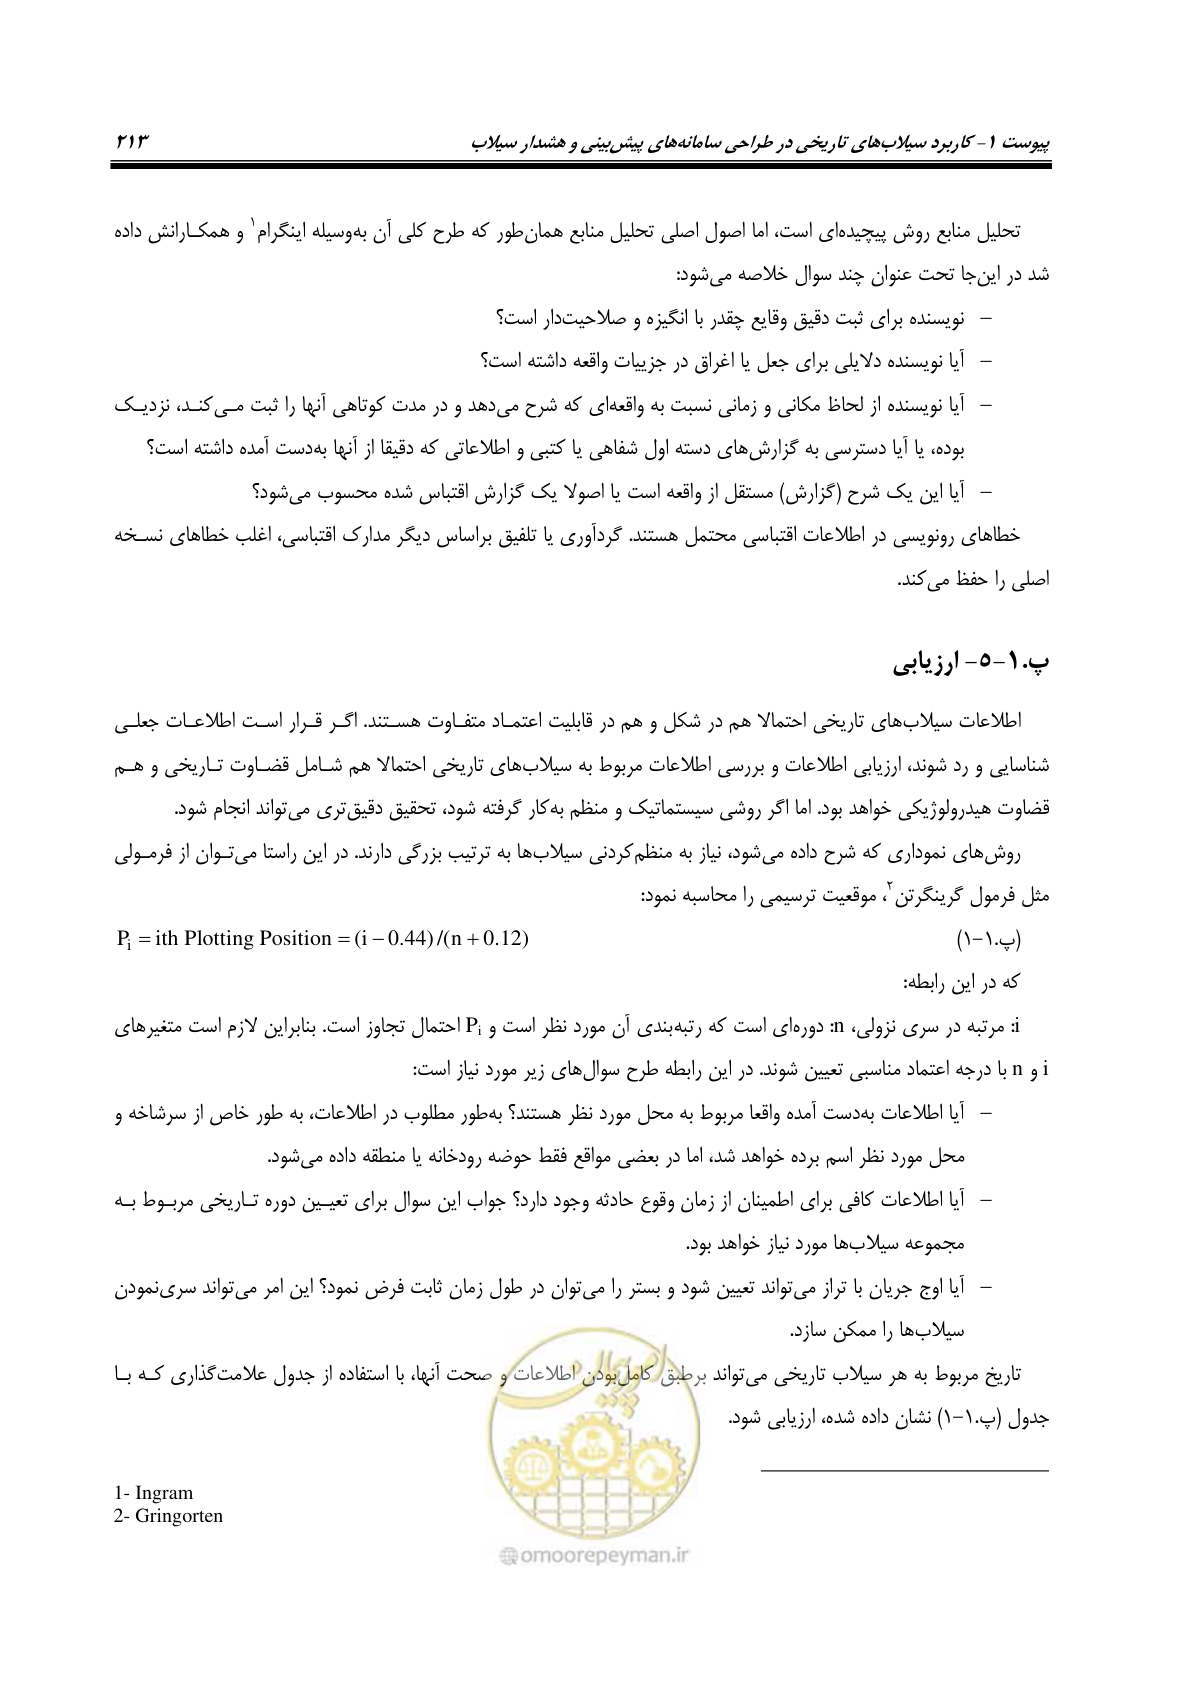 پیوست ۱- کاربرد سیلاب‌های تاریخی در طراحی سامانه‌های پیش‌بینی و هشدار سیلاب ۲۱۳
تحلیل منابع روش پیچیده‌ای است، اما اصول اصلی تحلیل منابع همان‌طور که طرح کلی آن به‌وسیله اینگرام۱ و همکارانش داده
شد در این‌جا تحت عنوان چند سوال خلاصه می‌شود:
– نویسنده برای ثبت دقیق وقایع چقدر با انگیزه و صلاحیت‌دار است؟
– آیا نویسنده دلایلی برای جعل یا اغراق در جزییات واقعه داشته است؟
– آیا نویسنده از لحاظ مکانی و زمانی نسبت به واقعه‌ای که شرح می‌دهد و در مدت کوتاهی آنها را ثبت می‌کند، نزدیک
بوده، یا آیا دسترسی به گزارش‌های دسته اول شفاهی یا کتبی و اطلاعاتی که دقیقا از آنها به‌دست آمده داشته است؟
– آیا این یک شرح (گزارش) مستقل از واقعه است یا اصولا یک گزارش اقتباس شده محسوب می‌شود؟
خطاهای رونویسی در اطلاعات اقتباسی محتمل هستند. گردآوری یا تلفیق براساس دیگر مدارک اقتباسی، اغلب خطاهای نسخه
اصلی را حفظ می‌کند.
پ.۱-۵- ارزیابی
اطلاعات سیلاب‌های تاریخی احتمالا هم در شکل و هم در قابلیت اعتماد متفاوت هستند. اگر قرار است اطلاعات جعلی
شناسایی و رد شوند، ارزیابی اطلاعات و بررسی اطلاعات مربوط به سیلاب‌های تاریخی احتمالا هم شامل قضاوت تاریخی و هم
قضاوت هیدرولوژیکی خواهد بود. اما اگر روشی سیستماتیک و منظم به‌کار گرفته شود، تحقیق دقیق‌تری می‌تواند انجام شود.
روش‌های نموداری که شرح داده می‌شود، نیاز به منظم‌کردنی سیلاب‌ها به ترتیب بزرگی دارند. در این راستا می‌توان از فرمولی
مثل فرمول گرینگرتن۲، موقعیت ترسیمی را محاسبه نمود:
(پ.۱-۱) Pi = ith Plotting Position = (i − 0.44)/(n + 0.12)
که در این رابطه:
i: مرتبه در سری نزولی، n: دوره‌ای است که رتبه‌بندی آن مورد نظر است و Pi احتمال تجاوز است. بنابراین لازم است متغیرهای
i و n با درجه اعتماد مناسبی تعیین شوند. در این رابطه طرح سوال‌های زیر مورد نیاز است:
– آیا اطلاعات به‌دست آمده واقعا مربوط به محل مورد نظر هستند؟ به‌طور مطلوب در اطلاعات، به طور خاص از سرشاخه و
محل مورد نظر اسم برده خواهد شد، اما در بعضی مواقع فقط حوضه رودخانه یا منطقه داده می‌شود.
– آیا اطلاعات کافی برای اطمینان از زمان وقوع حادثه وجود دارد؟ جواب این سوال برای تعیین دوره تاریخی مربوط به
مجموعه سیلاب‌ها مورد نیاز خواهد بود.
– آیا اوج جریان با تراز می‌تواند تعیین شود و بستر را می‌توان در طول زمان ثابت فرض نمود؟ این امر می‌تواند سری‌نمودن
سیلاب‌ها را ممکن سازد.
تاریخ مربوط به هر سیلاب تاریخی می‌تواند برطبق کامل‌بودن اطلاعات و صحت آنها، با استفاده از جدول علامت‌گذاری که با
جدول (پ.۱-۱) نشان داده شده، ارزیابی شود.
1- Ingram
2- Gringorten
امور پیمان
@omoorepeyman.ir